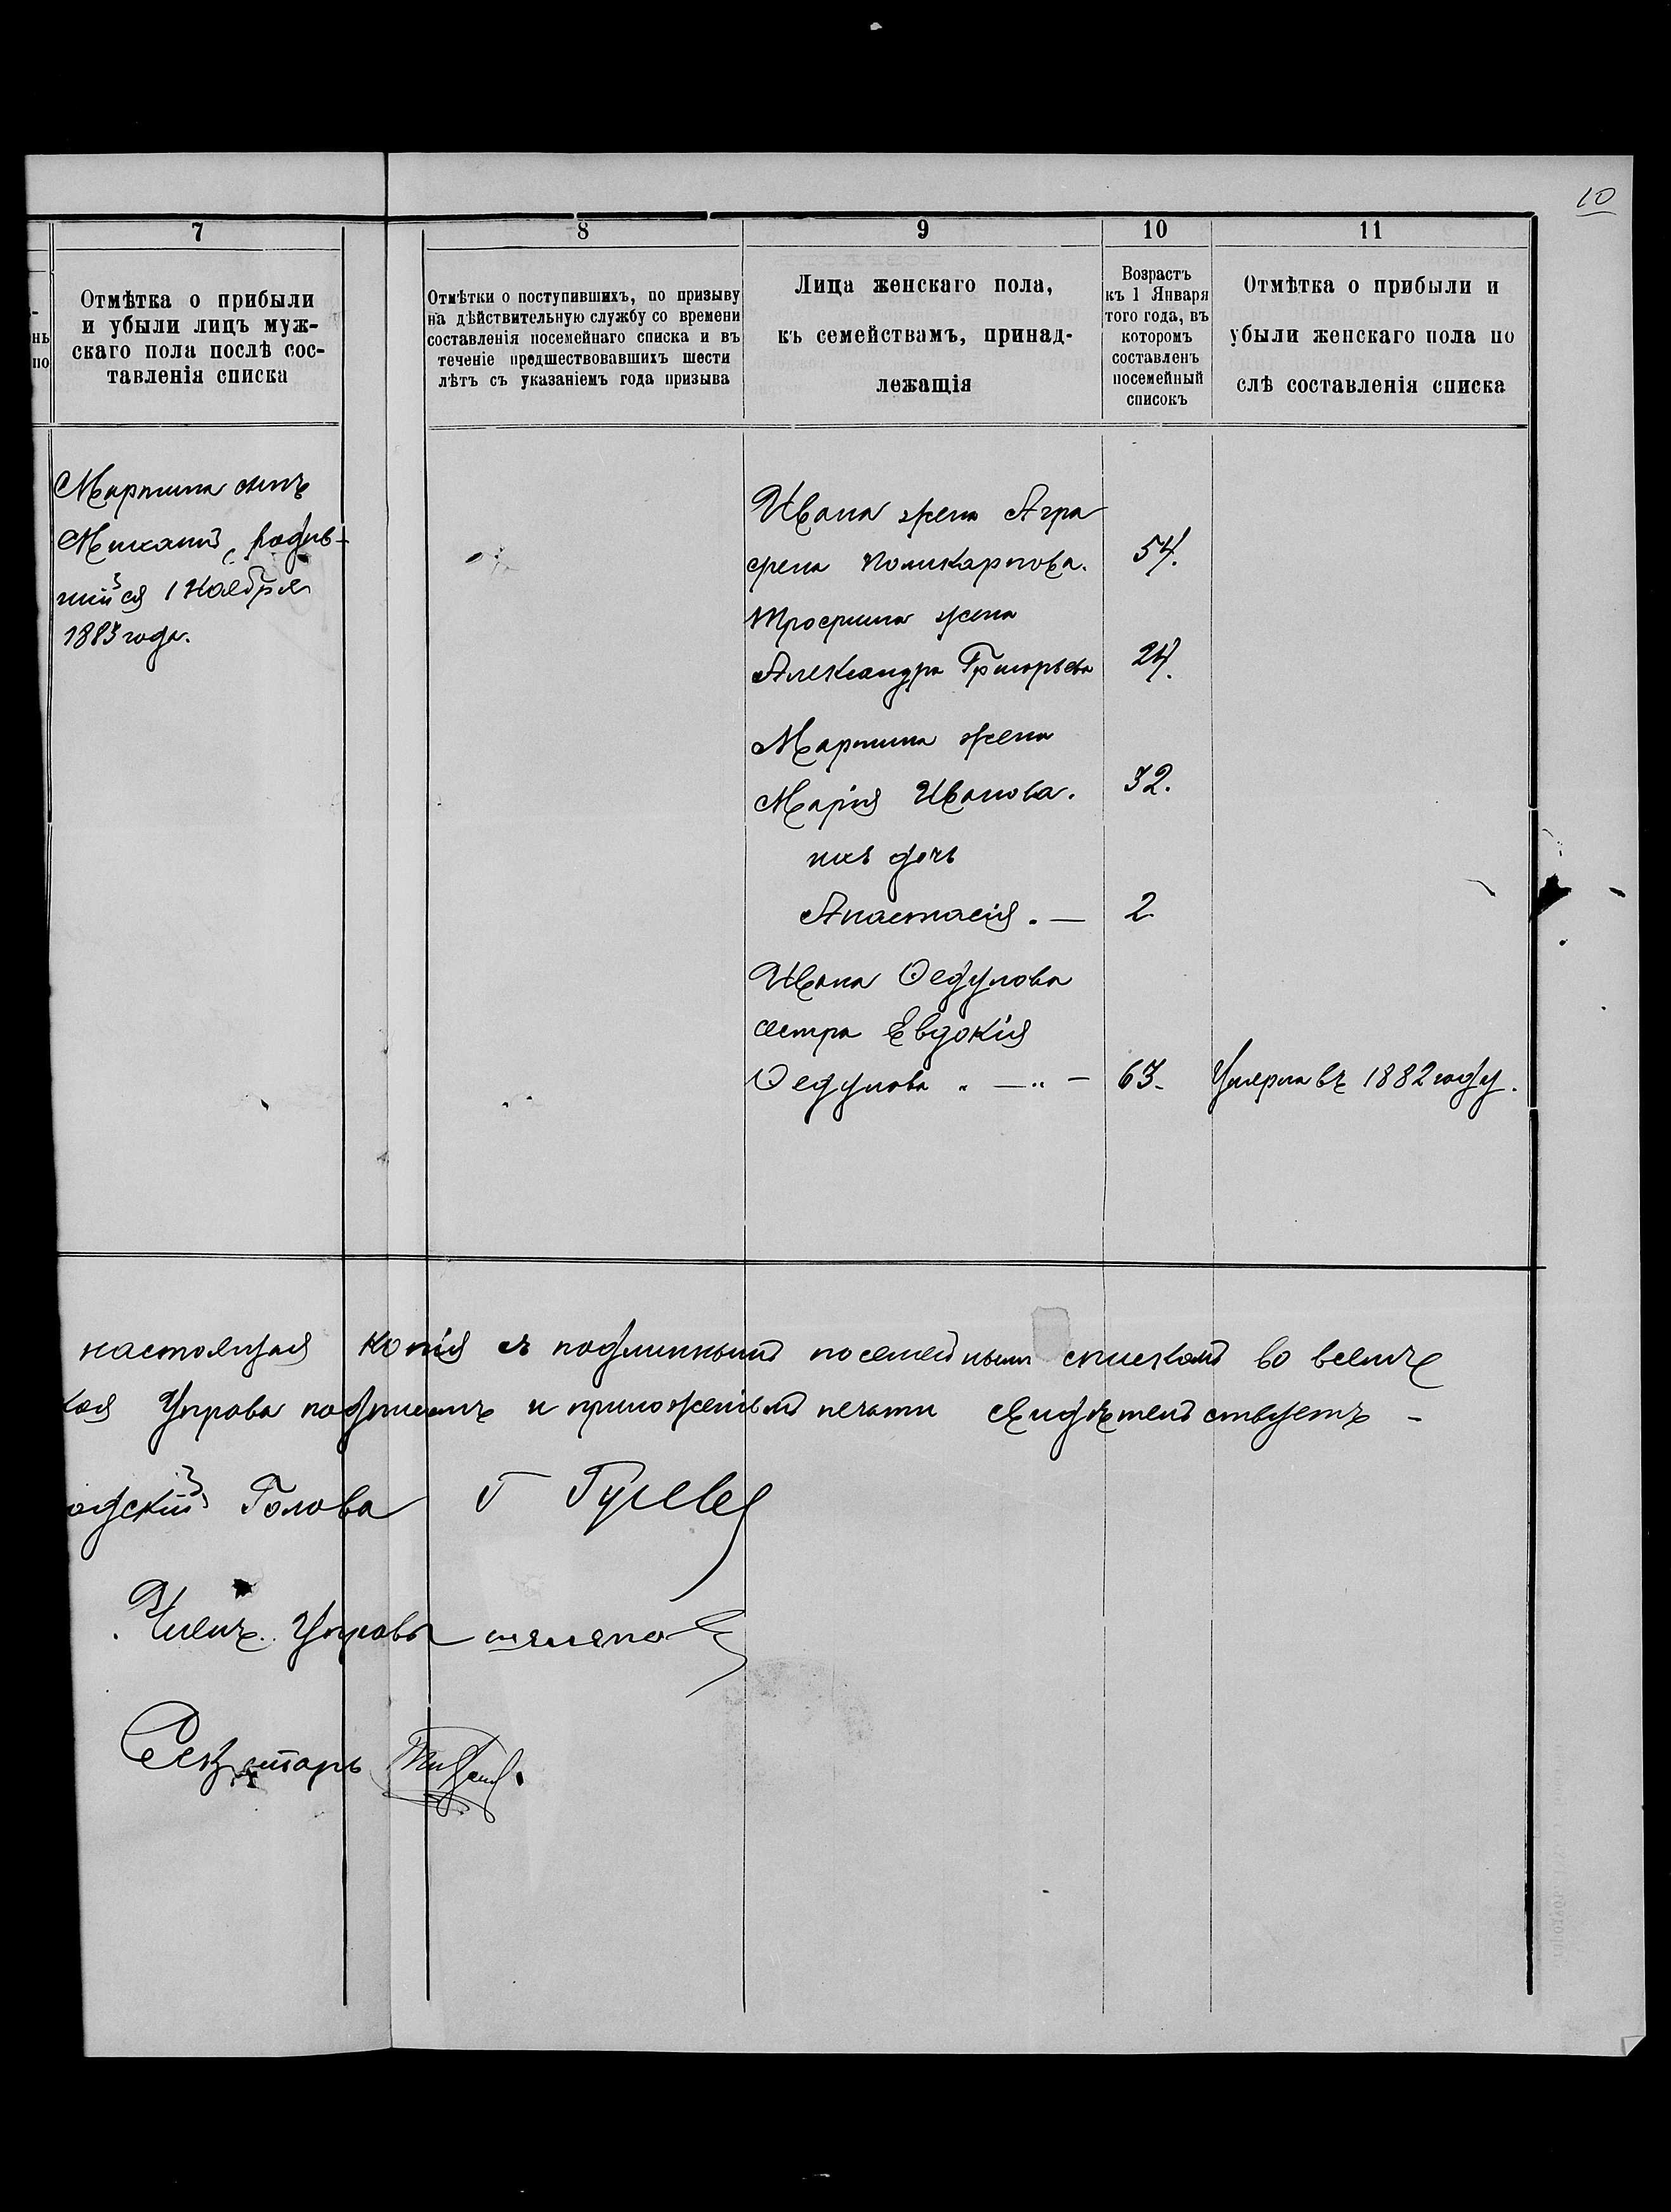 10
7
8
9
10
11
нь
по
Отмѣтка о прибыли
и убыли лицъ муж-
скаго пола послѣ сос-
тавленія списка
Отмѣтки о поступившихъ, по призыву
на дѣйствительную службу со времени
составленія посемейнаго списка и въ
теченіе предшествовавшихъ шести
лѣтъ съ указаніемъ года призыва
Лица женскаго пола,
къ семействамъ, принад-
лежащія
Возрастъ
къ 1 Января
того года, въ
которомъ
составленъ
посемейный
списокъ
Отмѣтка о прибыли и
убыли женскаго пола по
слѣ составленія списка
Мартина сынъ
Михаилъ, родив-
шійся 1 Ноября
1883 года.
Ивана жена Агра
фена Поликарпова. 54.
Трофима жена
Александра Григорьева 24.
Мартина жена
Марія Иванова. 32.
ихъ дочь
Анастасія. — 2
Ивана Ѳедулова
сестра Евдокія
Ѳедулова " — " — 63. Умерла въ 1882 году.
настоящая копія съ подлиннымъ посемейнымъ спискомъ во всемъ
кая Управа подписомъ и приложеніемъ печати свидѣтельствуетъ —
одской Голова Г Гусевъ
Членъ Управы
Секретарь